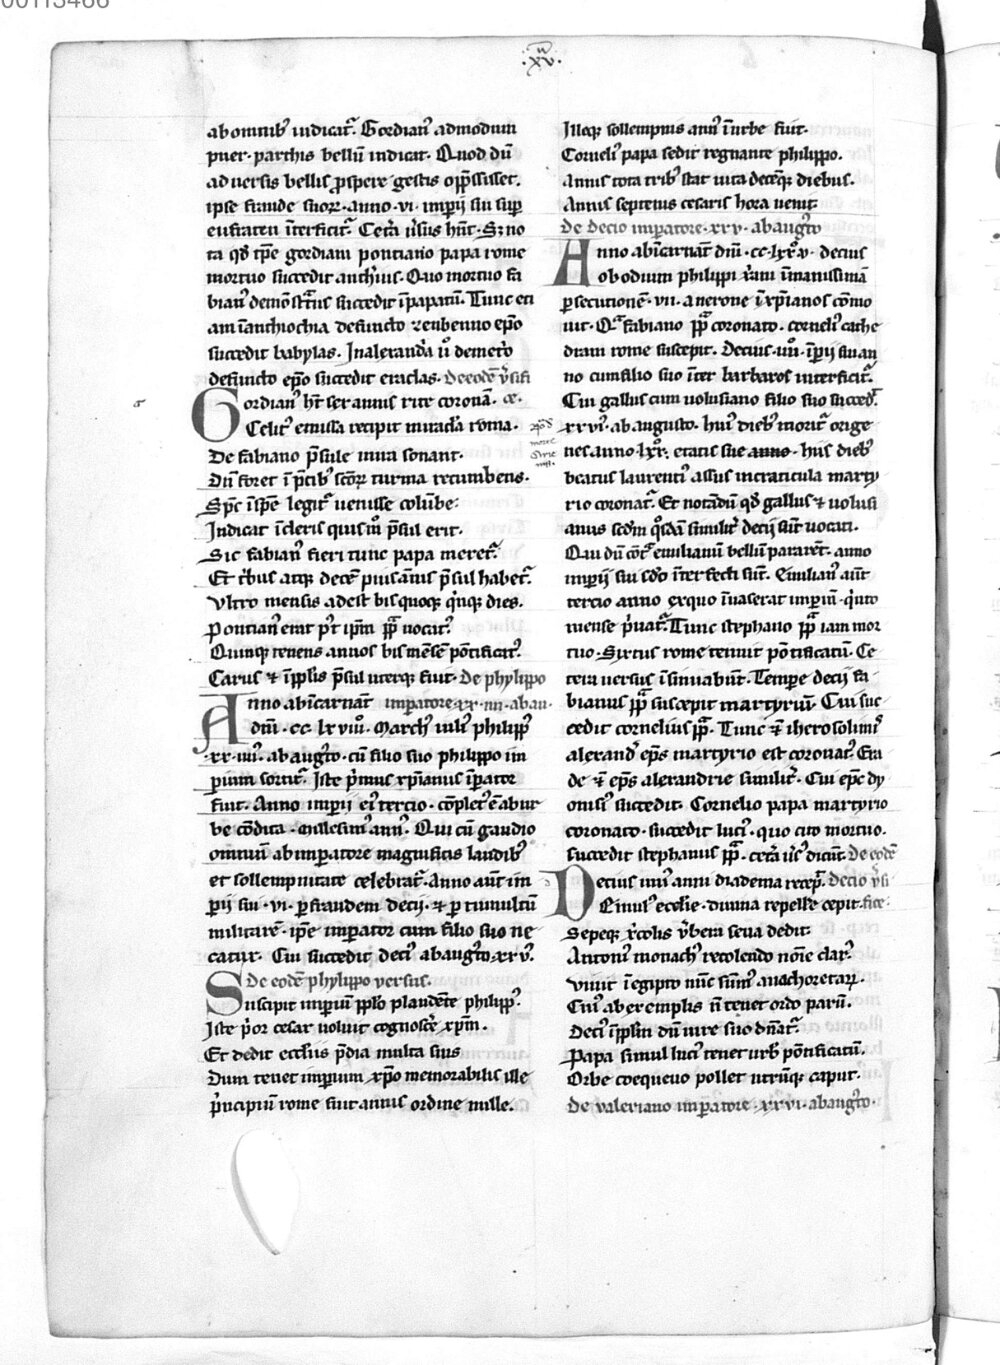 ·xv·
ab omnib; iudicat᷑. Gordian᷒ admodum
puer. parthis bellū indicat. Quod dū
aduersis bellis ꝓspere gestis opp̄ssisset.
ipse fraude suoꝝ. anno .vi. imperii sui suꝑ
eufraten īterficit᷑. Cet̄a v̄sus hn̄t. Sꝫ no
ta qd̄ tp̄e gordiani pontiano papa rome
mortuo succedit anth̓ius. Quo mortuo fa
bian᷒ demōst̄tus succedit ī papatū. Tunc eti
am ī anthiochia defuncto zenbenno ep̄o
succedit babylas. In alexand̓a ū demet̓o
defuncto ep̄o succedit eraclas. De eodē v̄sifi
Gordian᷒ ht̄ sex annis rite coronā. ce.
Celit᷒ emissa recipit miracl̓a roma.
De fabiano p̄sule mira sonant.
Dū foret ī p̄cib; sc̄oꝝ turma recumbens.
Sp̄c īsp̄e legit᷑ uenisse colūbe.
Indicat ī cleris quis m̊ p̄sul erit.
Sic fabian᷒ fieri tunc papa meret᷑.
Et t̓bus atq; decē pius annis p̄sul habet᷑.
Vltro mensis adest bis quoq; q̓nq; dies.
Pontian᷒ erat p᷒t ip̄m pp̄ uocat᷒.
Quinq; tenens annos bis mēse pōtificat᷒.
Carus ⁊ ī pp̄lis p̄sul uterq; fuit. De phylippo
Anno ab īcarnat̄ imperatore .xx.iiii. ab au.
dn̄i .cc.lxviiii. March᷒ iuli᷒ philipp᷒
.xx.iiii. ab aug̓to. cū filio suo philippo im
perium sortit᷑. Iste p̓mus xp̄ianus īperator
fuit. Anno imperii ei᷒ tercio. cōplet᷒ ē ab ur
be cōdita. millesim᷒ ann᷒. Qui cū gaudio
omnium ab imperatore magnificis laudib᷒
et sollempnitate celebrat᷑. Anno aūt im
perii sui .vi. per fraudem decii. ⁊ per tumultū
militarē. ip̄e imperator cum filio suo ne
catur. Cui succedit deci᷒ ab aug̓to .xx.v᷒.
De eodē phylippo versus.
Suscipit imperiū pp̄lo plaudēte philipp᷒.
Iste p̓or cesar uoluit cognosc̄e xp̄m.
Et dedit eccl̓iis p̄dia multa suis
Dum tenet imperium xp̄o memorabilis ille
p̓ncipiū rome fuit annis ordine mille.
Illeq; sollempnis ann᷒ ī urbe fuit.
Corneli᷒ papa sedit regnante philippo.
Annis tota trib᷒ stat uita decēq; diebus.
Annis septenis cesaris hora uenit.
De decio imperatore .xxv. ab aug̓to
Anno ab īcarnat̄ dn̄i .cc.lxx̊v. decius
ob odium philippi x̄ani īmanissimā
ꝑsecutionē .vii. a nerone ī xp̄ianos cōmo
uit. Qa̓ fabiano pp̄ coronato. corneli᷒ cathe
dram rome suscepit. Decius .uii. īperii sui an
no cum filio suo īter barbaros interficit᷑.
Cui gallus cum uolusiano filio suo succed̓.
xxvi᷒. ab augusto. hui᷒ dieb᷒ morit᷑ orige
nes anno .lxx̊. etatis sue anno. hiis dieb᷒
beatus laurenti᷒ assus in craticula marty
rio coronat᷑. Et notādū qd̄ gallus ⁊ uolusi
anus sed̄m q̊sdā similit᷑ decii sūt uocati.
Qui dū cōt̄ emilianū bellū pararēt. anno
imperii sui sd̄o īterfecti sūt. Emilian᷒ aūt
tercio anno ex quo īuaserat imperiū. q̓nto
mense p̓uat᷑. Tunc stephano pp̄ iam mor
tuo. Sixtus rome tenuit pōtificatū. Ce
tera uersus īsinuabūt. Tempore decii fa
bianus pp̄ suscepit martyriū. Cui suc
cedit cornelius pp̄. Tunc ⁊ ī iherosolimis
alexand̓ ep̄s martyrio est coronat᷒. Era
de ⁊ ep̄s alexandrie similit᷑. Cui ep̄c dy
onisi᷒ succedit. Cornelio papa martyrio
coronato. succedit luci᷒. quo cito mortuo.
succedit stephanus pp̄. cet̄a ūs᷒ dicūt. De eodē
Decius un᷒ anni diadema recep̄. decio v̄si
Emul᷒ ecclesie. diuina repelle cepit. fice.
Sepeq; x̄colis v̄bera seua dedit.
Antoni᷒ monach᷒ recolendo nōie clar᷒.
Viuit ī egipto nūc sūm᷒ anachoretaꝝ.
Cui᷒ ab exemplis n̄ tenet ordo parū.
Deci᷒ īpp̄siū dū iure suo dn̄at᷑.
Papa simul luci᷒ tenet urb᷒ pōtificatū.
Orbe coequeuo pollet utrūq; caput.
De valeriano imperatore .xxvi. ab aug̓to.